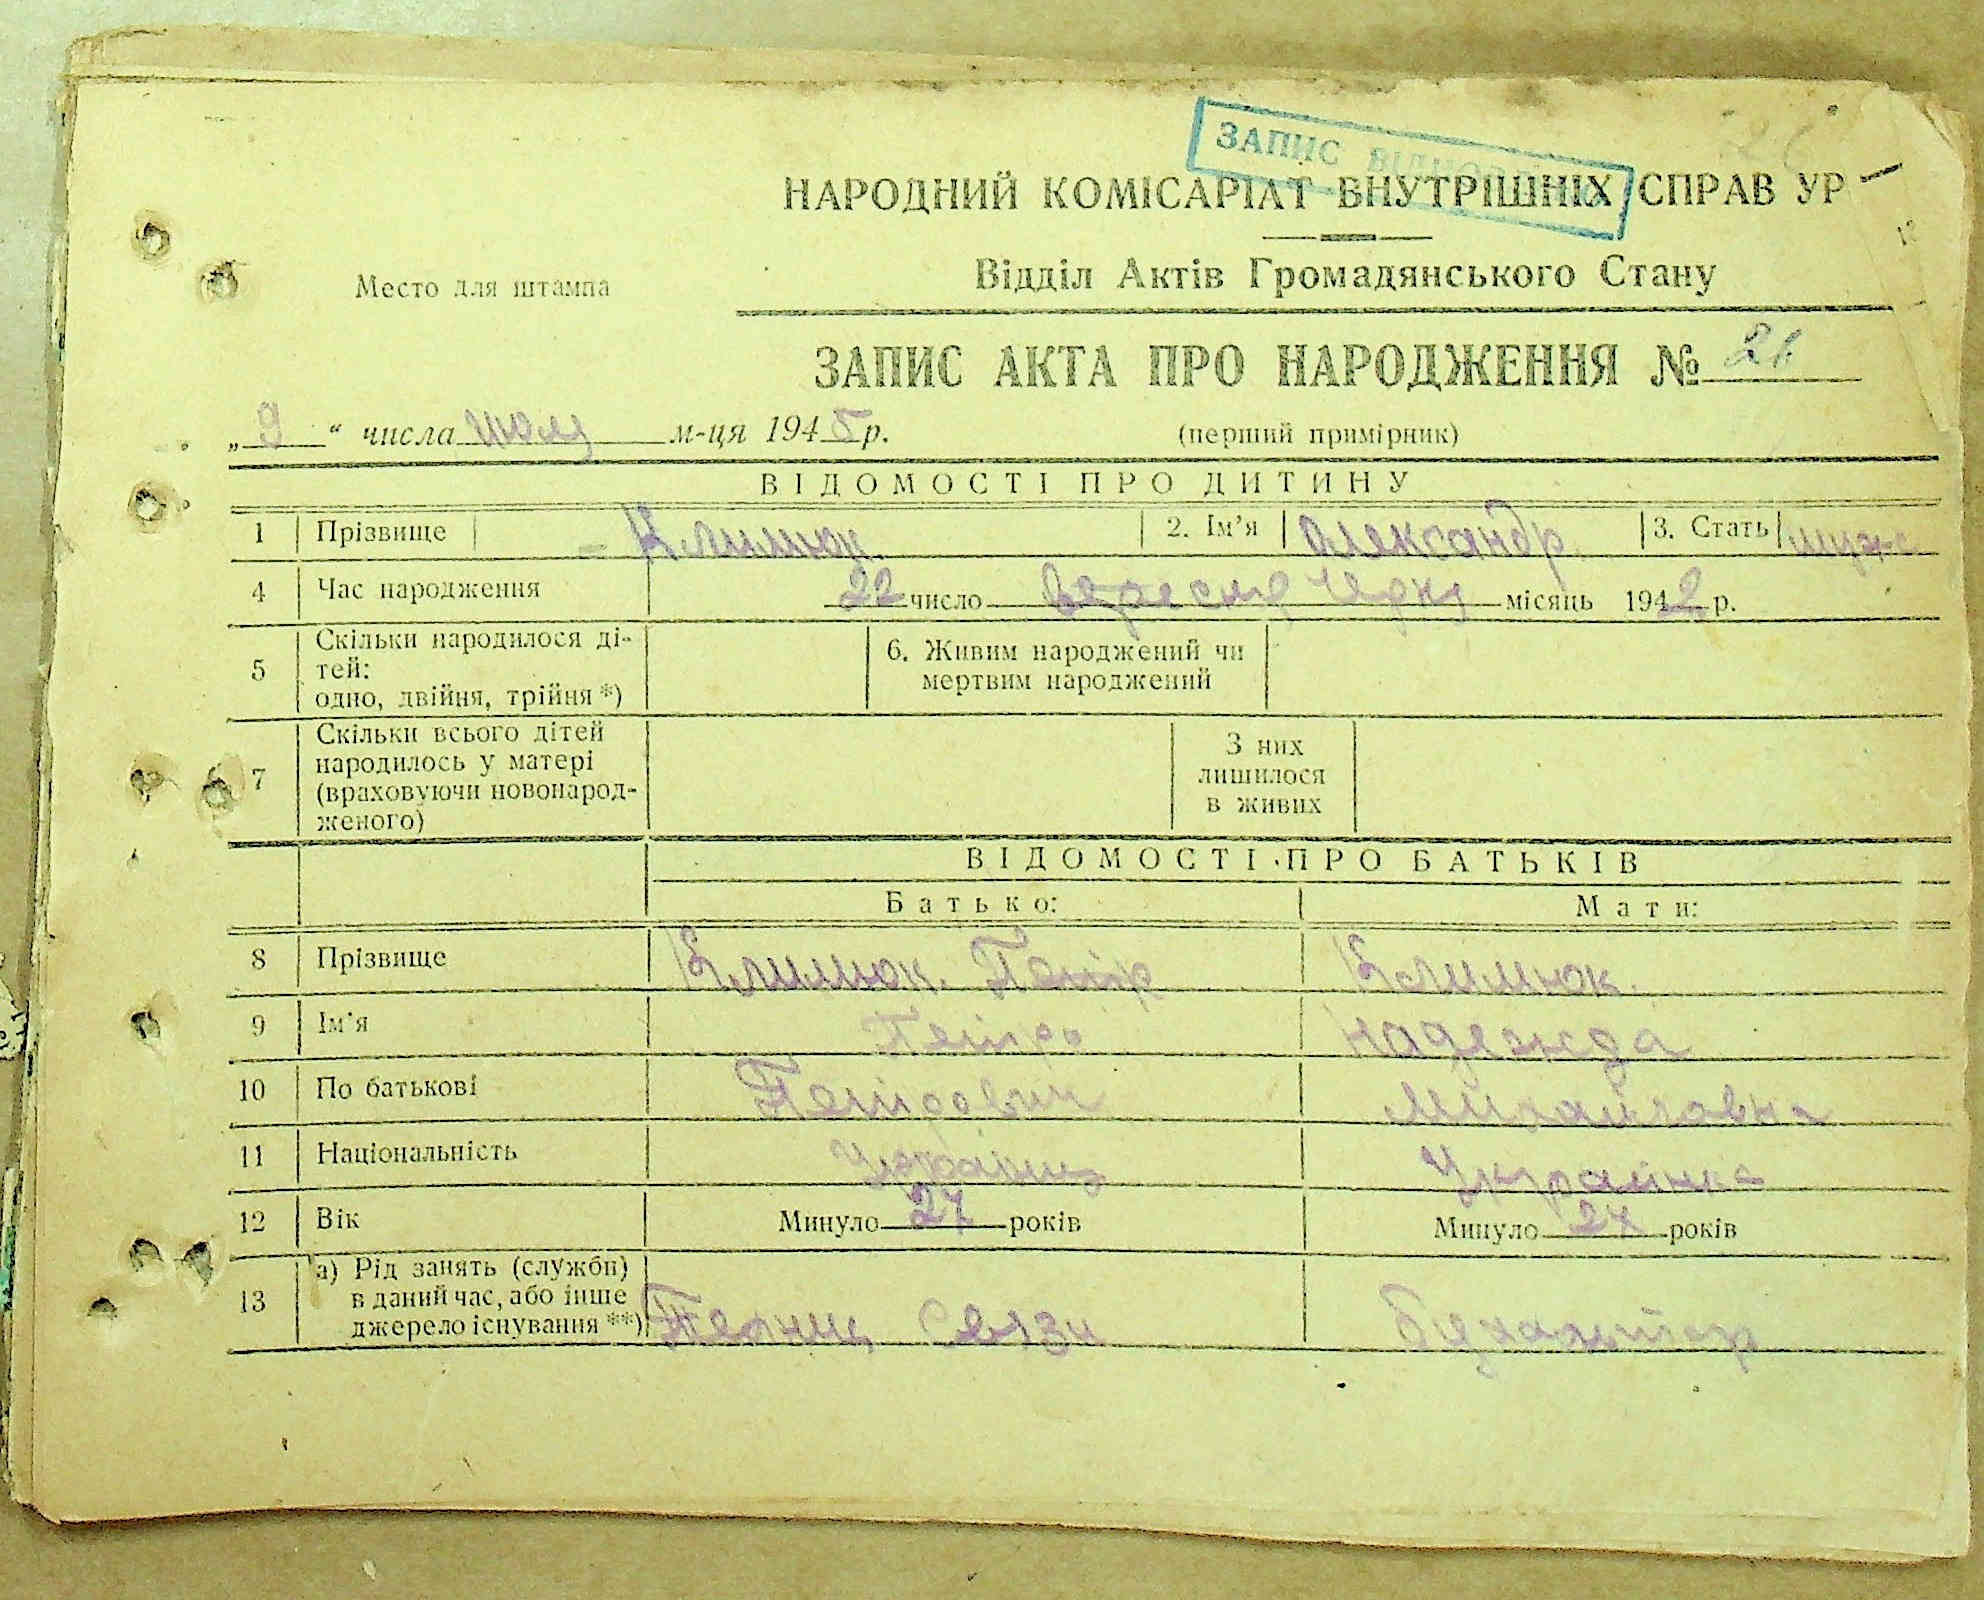 ЗАПИС ВІДНОВ
НАРОДНИЙ КОМІСАРІАТ ВНУТРІШНІХ СПРАВ УР
Место для штампа
Відділ Актів Громадянського Стану
ЗАПИС АКТА ПРО НАРОДЖЕННЯ № 26
„9“ числа июля м-ця 1945 р. (перший примірник)
ВІДОМОСТІ ПРО ДИТИНУ
1 Прізвище Климюк. 2. Ім'я Олександр. 3. Стать муж
4 Час народження 22 число вересня місяць 1942 р.
5 Скільки народилося ді-
тей:
одно, двійня, трійня *)
6. Живим народжений чи
мертвим народжений
7 Скільки всього дітей
народилось у матері
(враховуючи новонарод-
женого)
З них
лишилося
в живих
ВІДОМОСТІ ПРО БАТЬКІВ
Батько: Мати:
8 Прізвище Климюк. Петр Климюк.
9 Ім'я Петро Надежда
10 По батькові Петрович Михайловна
11 Національність Українц Украинка
12 Вік Минуло 27 років Минуло 27 років
13 а) Рід занять (служби)
в даний час, або інше
джерело існування **)
Связи Бухгалтор